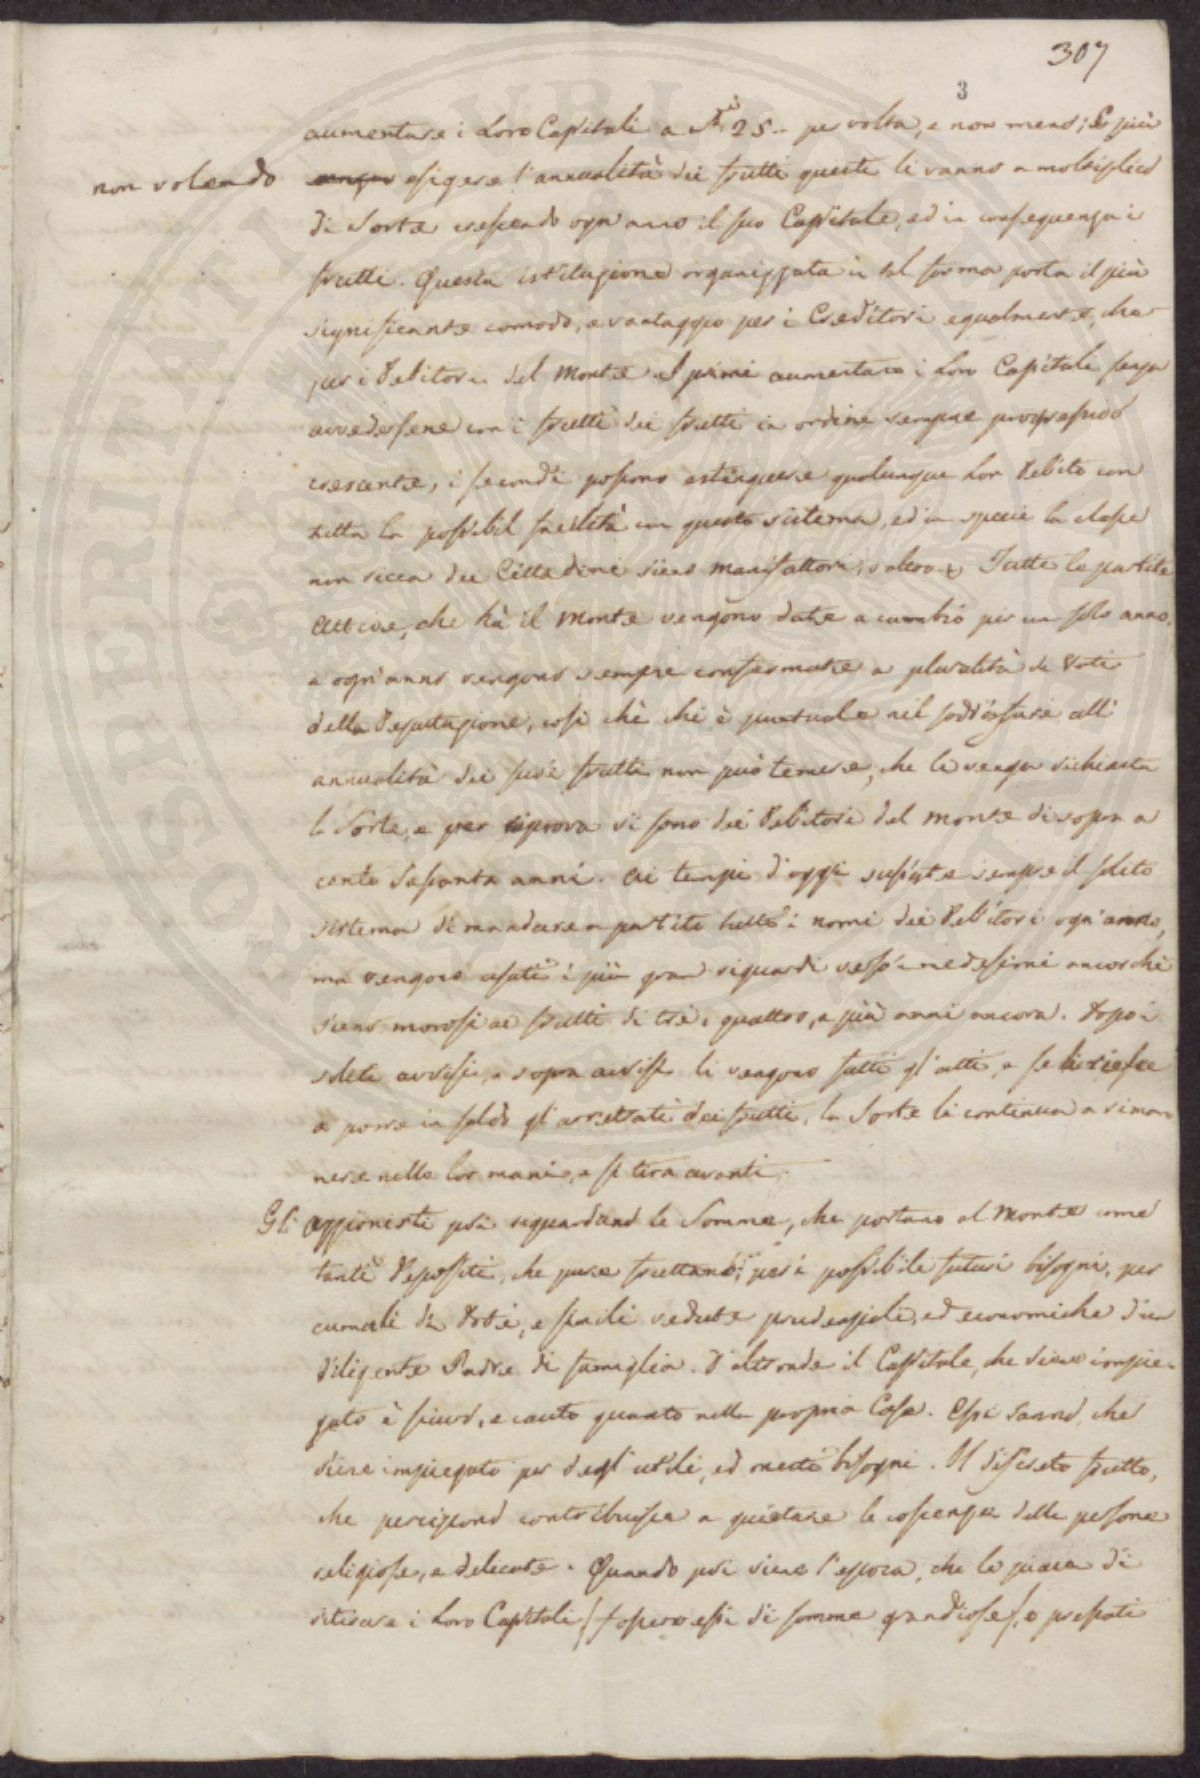 307
3
aumentare i Loro Capitali a 25 per volta, e non meno; E più
non volendo esigere l'annualità dei frutti questi li vanno a moltiplico
di Sorte crescendo ogn'anno il suo Capitale, ed in conseguenza i
frutti. Questa istituzione organizzata in tal forma porta il più
significante comodo, e vantaggio per i Creditori egualmente, che
per i Debitori del Monte. I primi aumentano i loro Capitali senza
avvedersene con i frutti dei frutti in ordine sempre progressivo
crescente, i secondi possono estinguere qualunque Lor Debito con
tutta la possibil facilità con questo sistema, ed in specie la classe
non ricca dei Cittadini sieno Manifattori, o altro. Tutte le partite
attive, che hà il Monte vengono date a cambio per un solo anno,
e ogn'anno vengono sempre confermate a pluralità di Voti
della Deputazione, così chè chi è puntuale nel soddisfare all'
annualità dei suoi frutti non può temere, che li venga richiesta
la Sorte, e per riprova vi sono dei Debitori del Monte di sopra a
cento sessanta anni. Ai tempi d'oggi sussiste sempre il solito
sistema di mandare a partito tutti i nomi dei Debitori ogn'anno,
ma vengono usati i più gran riguardi verso i medesimi ancorchè
sieno morosi ai frutti di trè, quattro, e più anni ancora. Dopo i
soliti avvisi, e sopra avvisi li vengono fatti gl'atti, e se li riesce
a porre in saldo gl'arretrati dei frutti, la Sorte li continua a rima
nere nelle lor mani, e si tira avanti.
Gl' Azzionisti poi riguardano le Somme, che portano al Monte come
tanti Depositi, che pure fruttano, per i possibili futuri bisogni, per
cumuli di Doti, e simili vedute prudenziali, ed economiche d'un
diligente Padre di famiglia. D'altronde il Capitale, che viene impie-
gato è sicuro, e cauto quanto nella propria Casa. Essi sanno, che
viene impiegato per degl'utili, ed onesti bisogni. Il discreto frutto,
che percipono contribuisce a quietare le coscienze delle persone
religiose, e delicate. Quando poi viene l'epoca, che le piace di
ritirare i Loro Capitali / fossero essi di somme grandiose / e pressati